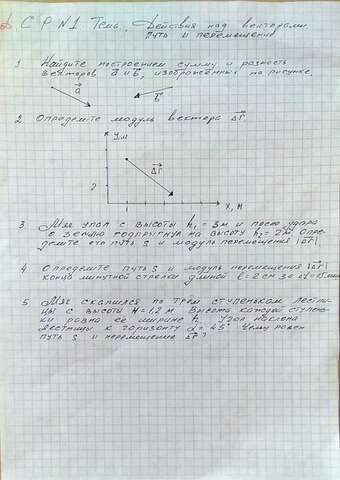 СР N1 Тема: Действия над векторами
путь и перемещение
1 Найдите построением сумму и разность
векторов a и b, изображённых на рисунке.
a
b
2 Определите модуль вектора Δr
У,м
Δr
2
Х, м
3. Мяч упал с высоты h₁ = 3м и после удара
о землю подпрыгнул на высоту h₂ = 2м Опре-
делите его путь S и модуль перемещения |Δr|
4 Определите путь S и модуль перемещения |Δr|
конца минутной стрелки длиной l = 2 см за Δt = 15мин
5 Мяч скатился по трем ступенькам лестни-
цы с высоты H = 1,2 м Высота каждой ступень-
ки равна ее ширине h. Угол наклона
лестницы к горизонту α = 45° Чему равен
путь S и перемещение Δr?